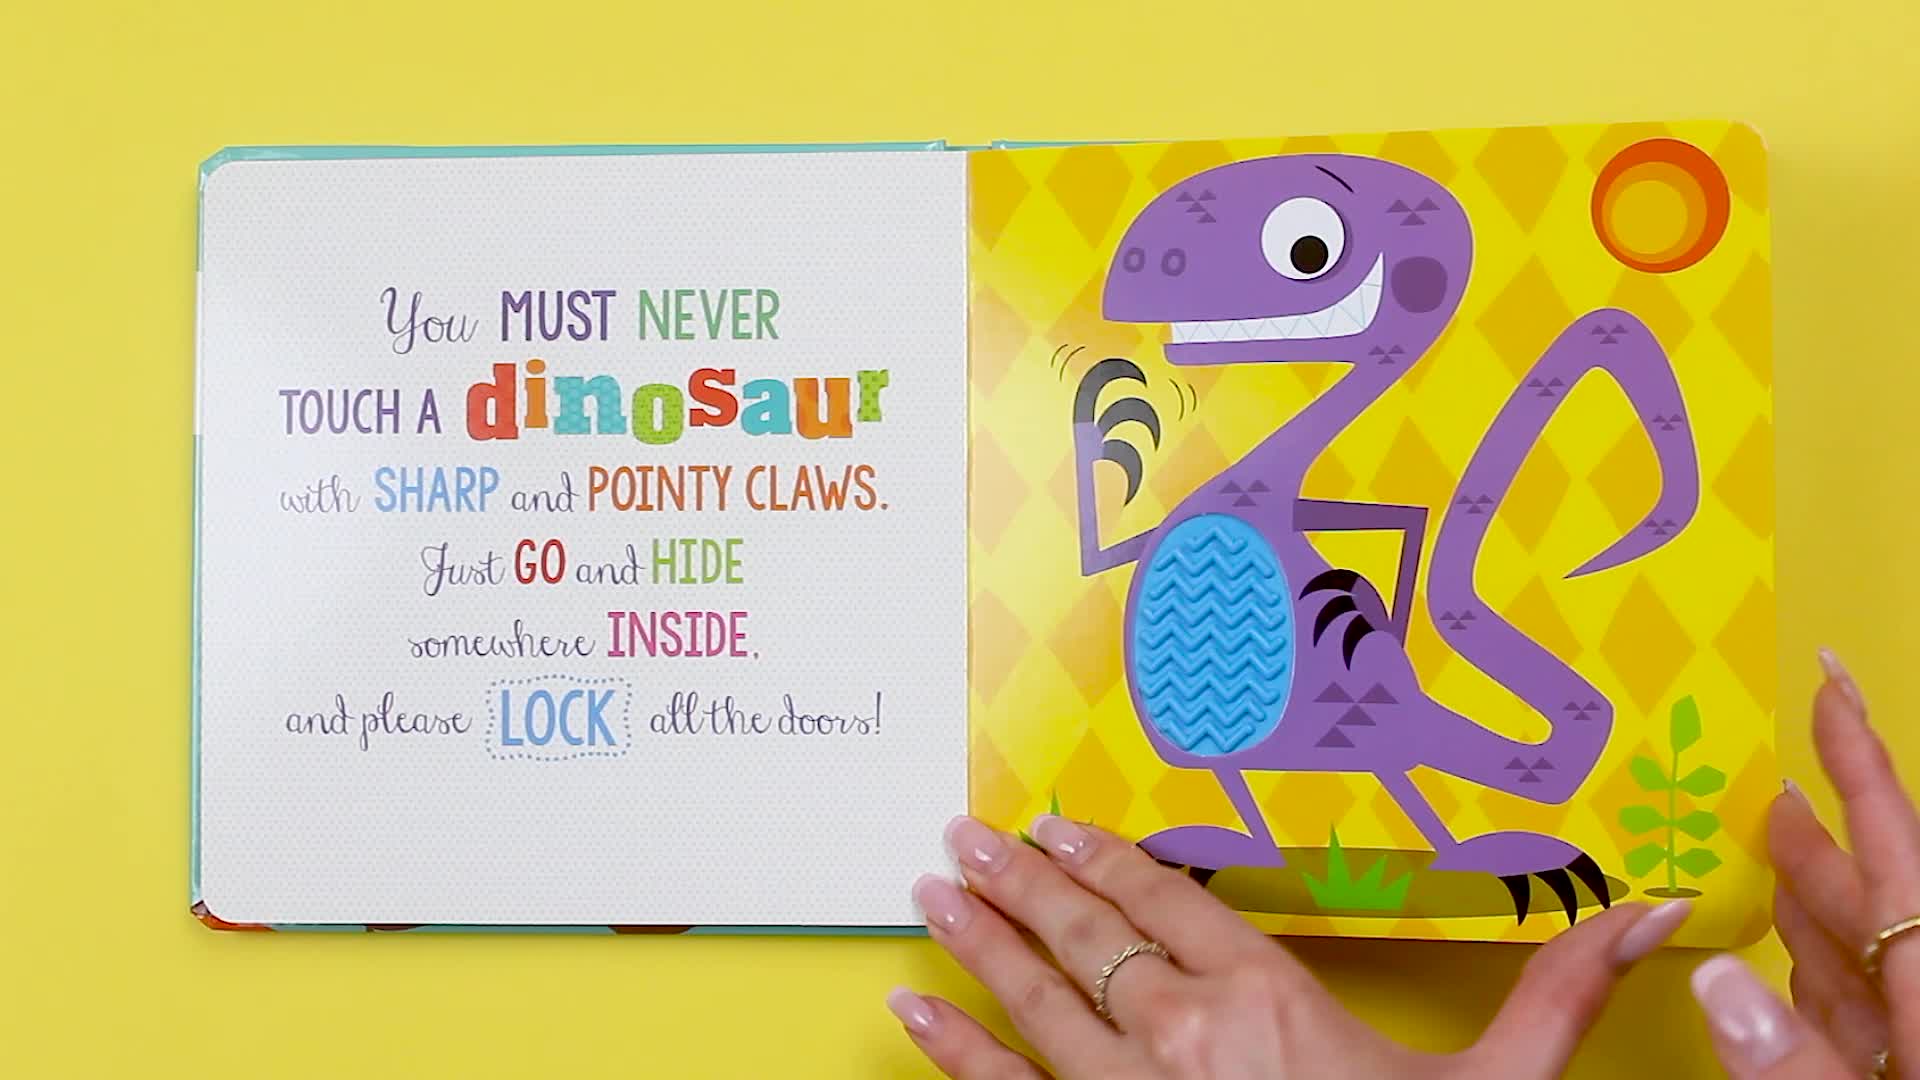 You MUST NEVER
TOUCH A dinosaur
with SHARP and POINTY CLAWS.
Just GO and HIDE
somewhere INSIDE,
and please LOCK all the doors!